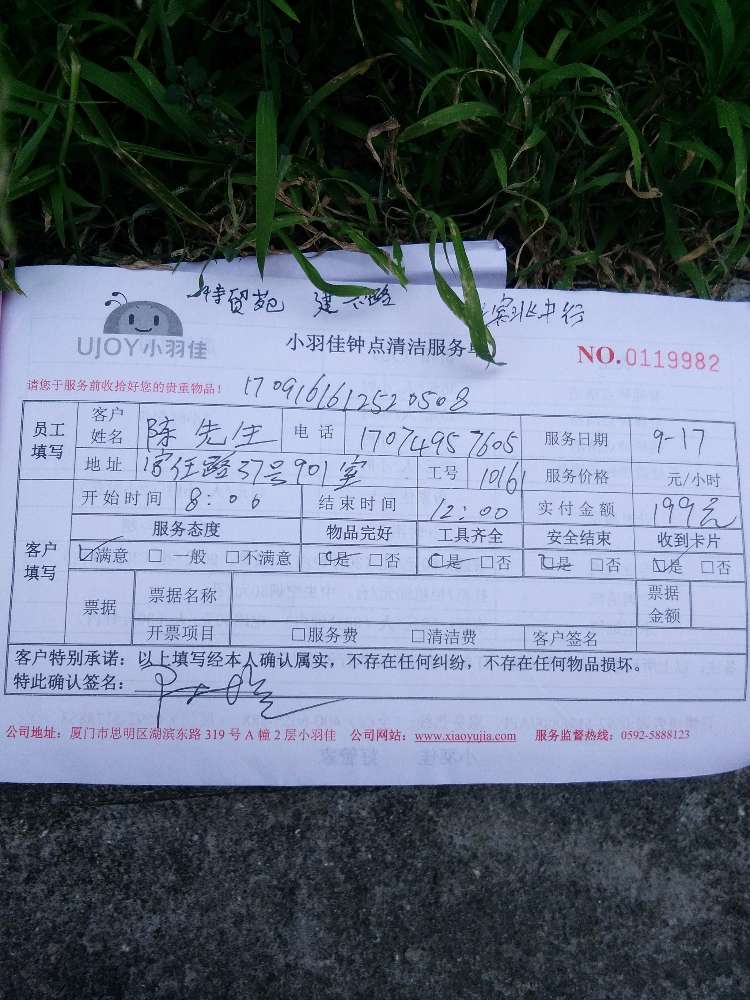 特贸苑 建六路
UJOY小羽佳
小羽佳钟点清洁服务单
NO.0119982
请您于服务前收拾好您的贵重物品！
170916161252 0508
员工填写 客户姓名 陈先生 电话 17074957605 服务日期 9-17
地址 37号901室 工号 10161 服务价格 元/小时
开始时间 8:00 结束时间 12:00 实付金额 199元
客户填写 服务态度 物品完好 工具齐全 安全结束 收到卡片
☑满意 □一般 □不满意 ☑是 □否 ☑是 □否 ☑是 □否 ☑是 □否
票据 票据名称 票据金额
开票项目 □服务费 □清洁费 客户签名
客户特别承诺：以上填写经本人确认属实，不存在任何纠纷，不存在任何物品损坏。
特此确认签名：
公司地址：厦门市思明区湖滨东路 319 号 A 幢 2 层小羽佳 公司网站：www.xiaoyujia.com 服务监督热线：0592-5888123